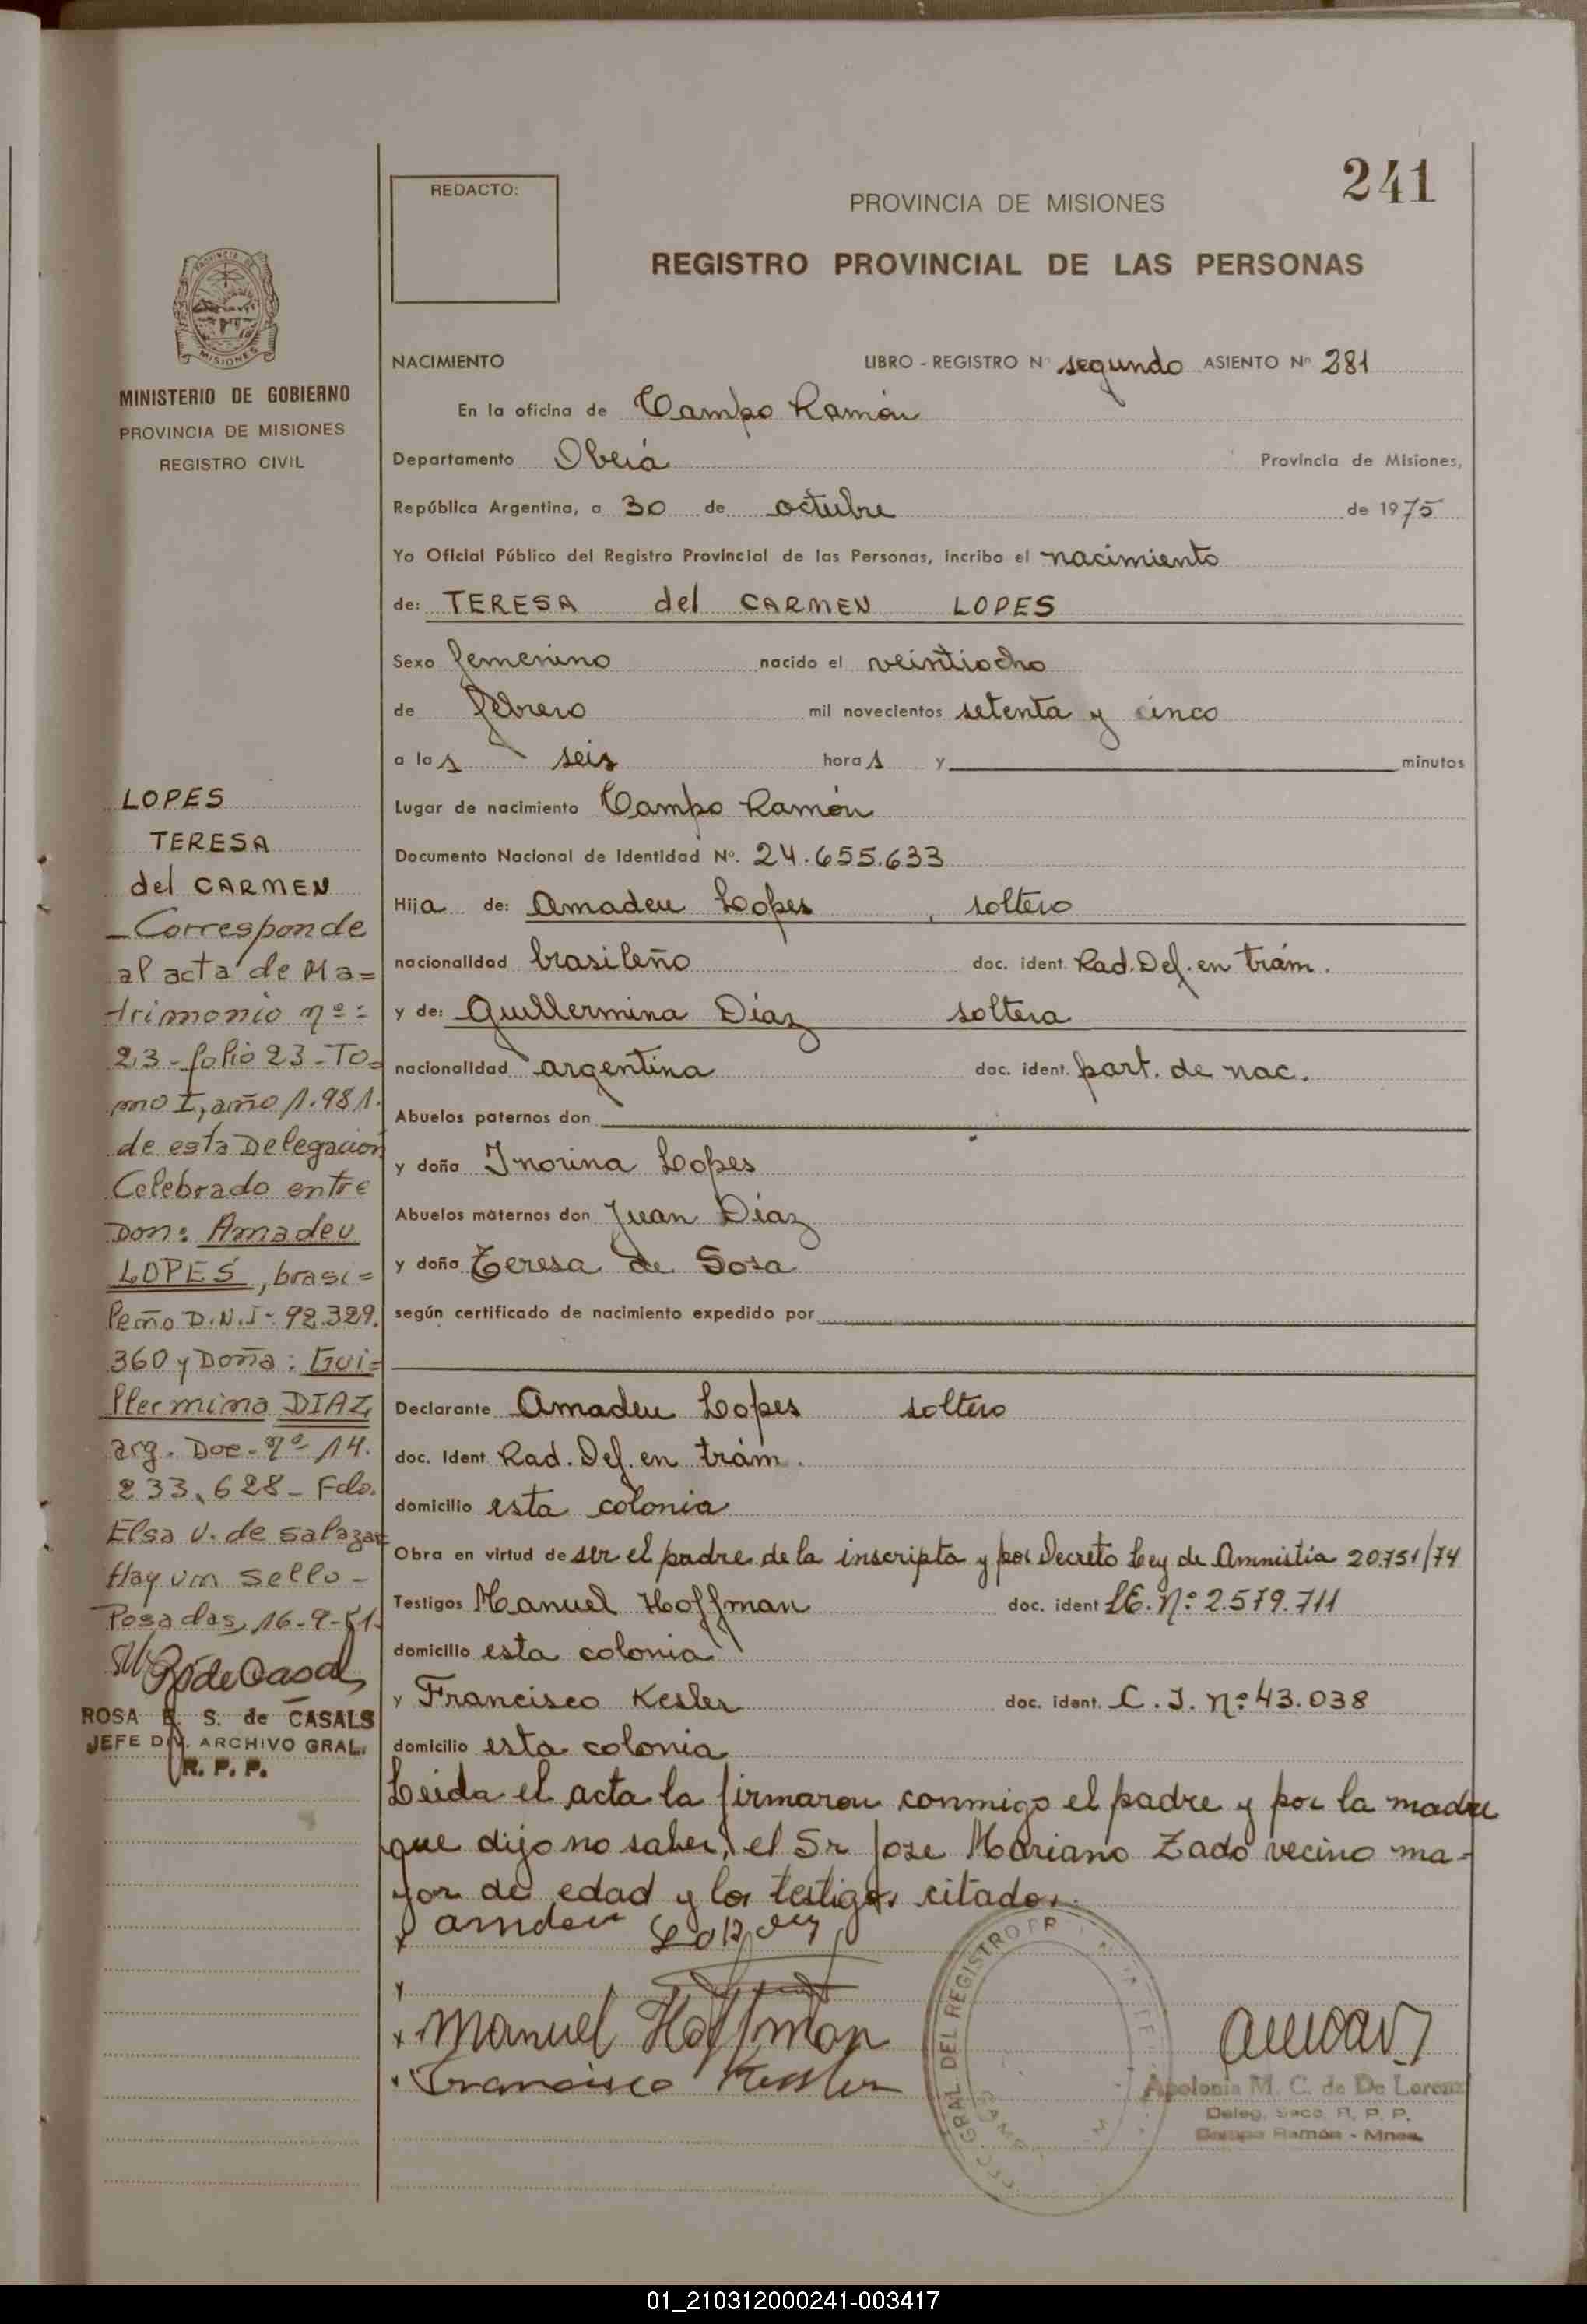 241
REDACTO:
PROVINCIA DE MISIONES
REGISTRO PROVINCIAL DE LAS PERSONAS
PROVINCIA DE
MISIONES
MINISTERIO DE GOBIERNO
PROVINCIA DE MISIONES
REGISTRO CIVIL
NACIMIENTO LIBRO - REGISTRO Nº segundo ASIENTO Nº 281
En la oficina de Campo Ramón
Departamento Oberá Provincia de Misiones,
República Argentina, a 30 de octubre de 1975
Yo Oficial Público del Registro Provincial de las Personas, incribo el nacimiento
de: TERESA del CARMEN LOPES
Sexo femenino nacido el veintiocho
de febrero mil novecientos setenta y cinco
a las seis horas y minutos
Lugar de nacimiento Campo Ramón
Documento Nacional de Identidad Nº. 24.655.633
Hija de: Amadeu Lopes, soltero
nacionalidad brasileño doc. ident. Rad. Def. en trám.
y de: Guillermina Díaz soltera
nacionalidad argentina doc. ident. part. de nac.
Abuelos paternos don
y doña Inorina Lopes
Abuelos maternos don Juan Díaz
y doña Teresa de Sosa
según certificado de nacimiento expedido por
Declarante Amadeu Lopes soltero
doc. Ident Rad. Def. en trám.
domicilio esta colonia
Obra en virtud de ser el padre de la inscripta y por Decreto Ley de Amnistía 20.751/74
Testigos Manuel Hoffman doc. ident L.E. Nº: 2.579.711
domicilio esta colonia
y Francisco Kesler doc. ident. C. I. nº: 43.038
domicilio esta colonia
Leida el acta la firmaron conmigo el padre y por la madre
que dijo no saber, el Sr Jose Mariano Zado vecino ma-
yor de edad y los testigos citados.
x amdeu
y
x Manuel Hoffman
x Francisco Kessler
GRAL. DEL REGISTRO
Apolonia M. C. de De Lorenz
Deleg. Secc. R. P. P.
Campo Ramón - Mnes.
LOPES
TERESA
del CARMEN
- Corresponde
al acta de Ma=
trimonio nº:
23 - folio 23 - To=
mo I, año 1.981.
de esta Delegacion
Celebrado entre
Don: Amadeu
LOPES, brasi=
leño D.N.I - 92.329.
360 y Doña: Gui=
llermina DIAZ,
arg. Doc. nº 14.
233.628 - Fdo.
Elsa V. de Salazar
Hay un sello -
Posadas, 16-9-81.
ROSA E. S. de CASALS
JEFE DIV. ARCHIVO GRAL.
R. P. P.
01_210312000241-003417